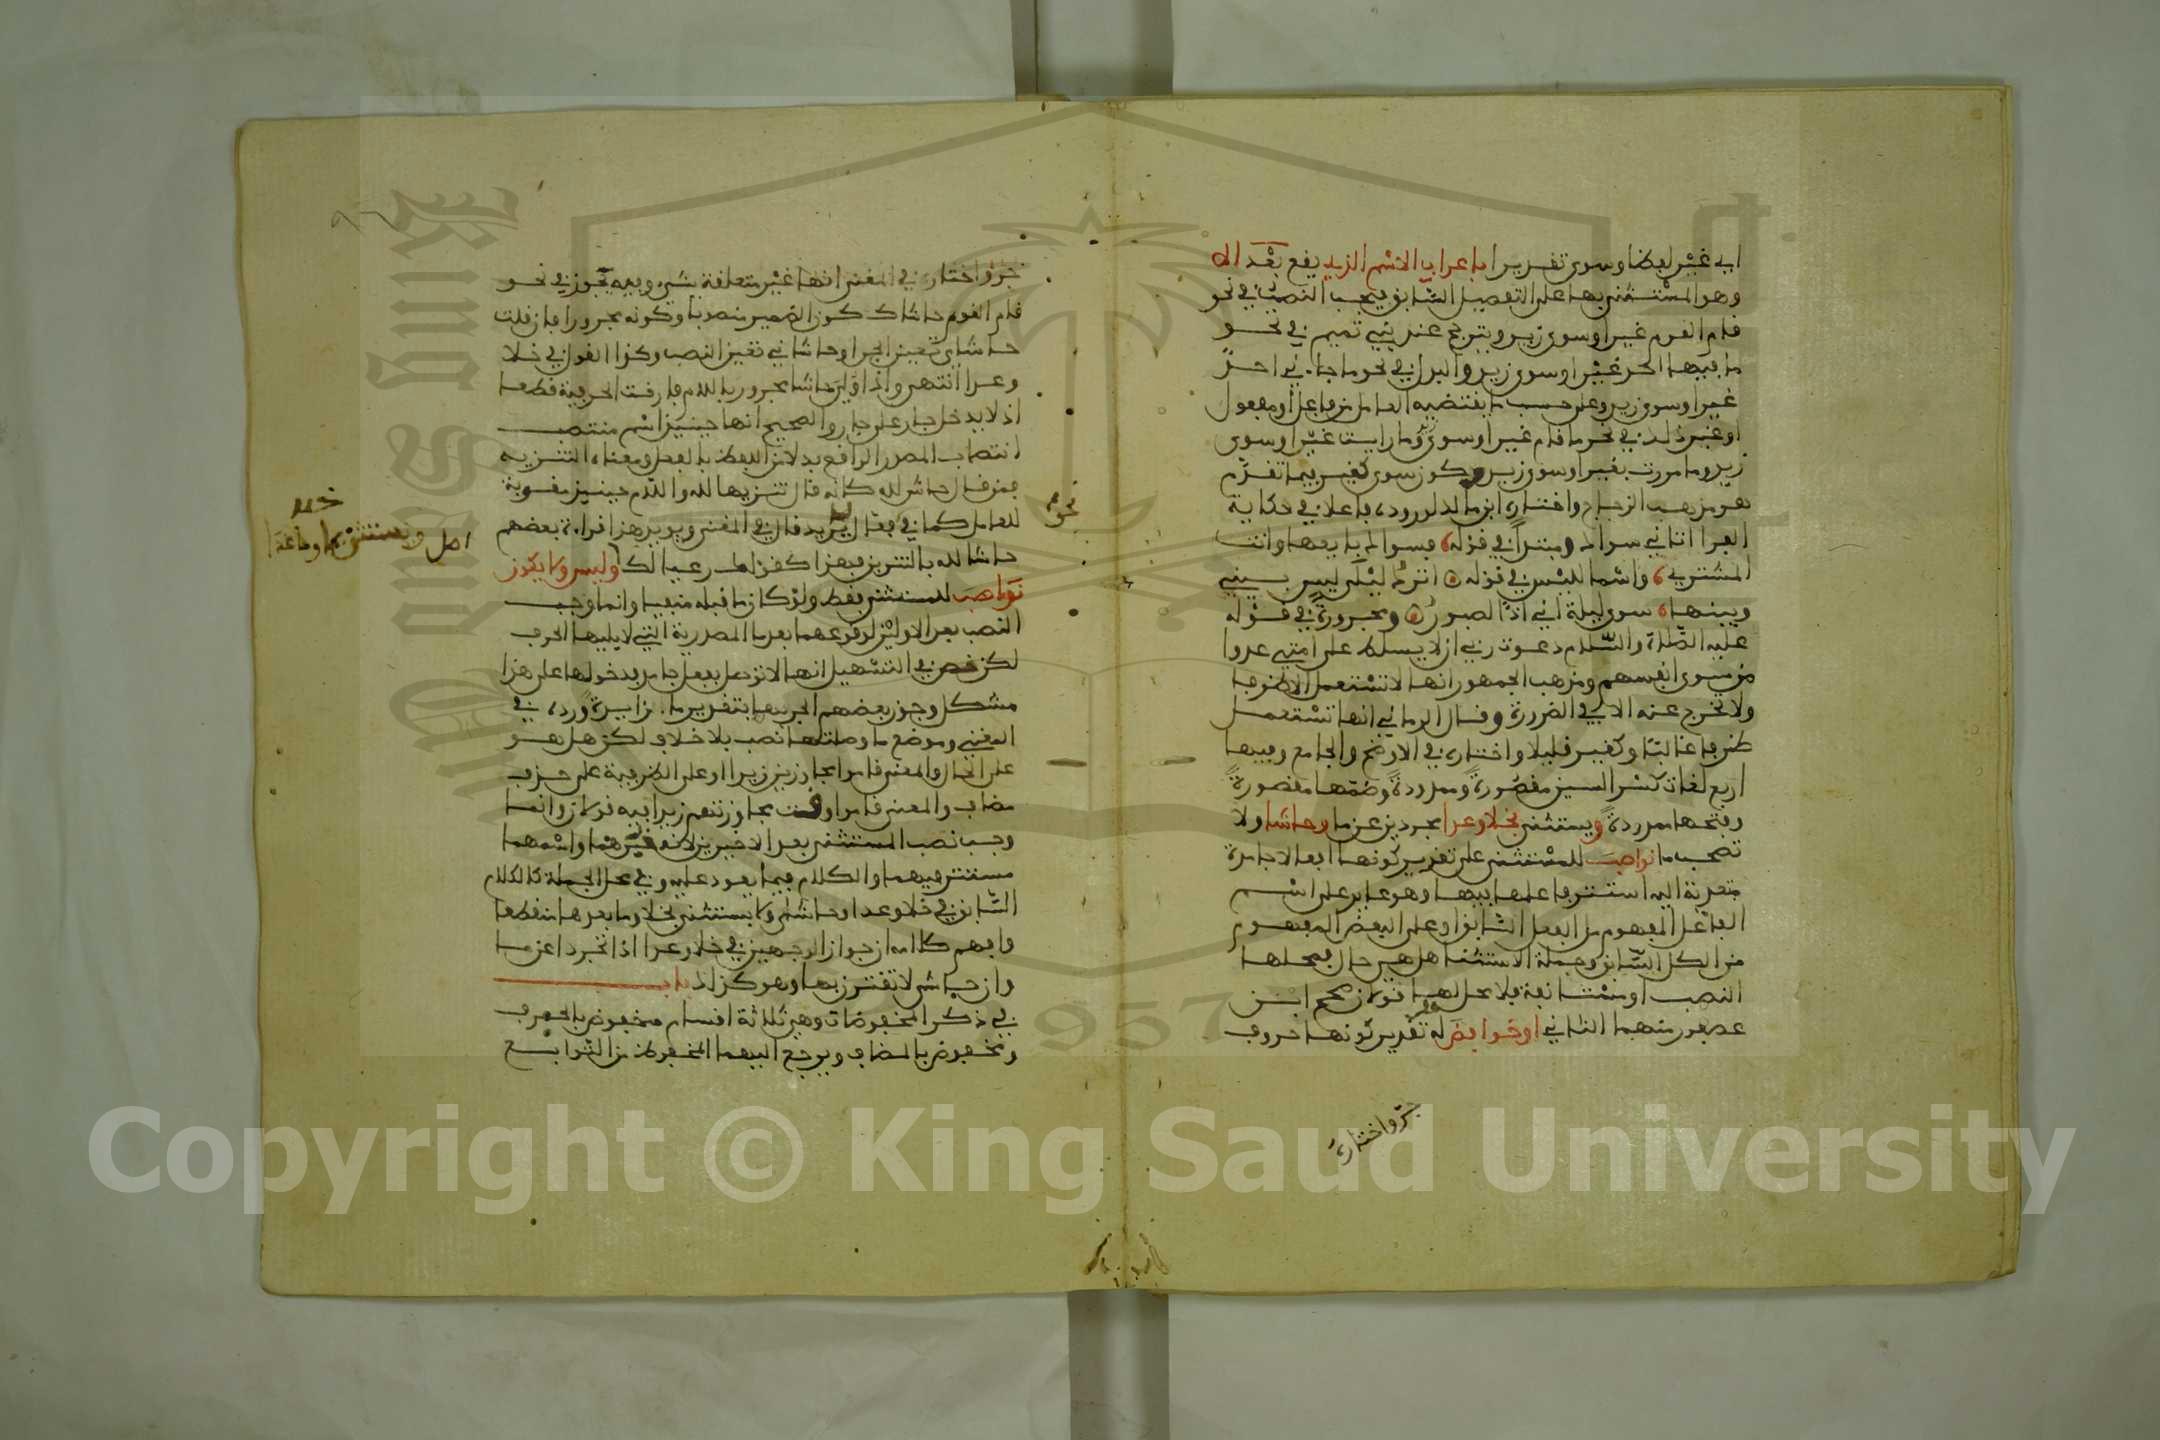 اي غير لفظا وسوى تقديرا باعراب الاسم الذي يقع بعد الا
وهو المستثنى بها على التفصيل السابق فيجب النصب في نحو
قام القوم غير او سوى زيد ويترجح عند بني تميم في نحو
ما فيها احد غير او سوى زيد والبدل في نحو ما جاءني احد
غير او سوى زيد وعلى حسب ما يقتضيه العامل من فاعل او مفعول
او غير ذلك في نحو ما قام غير او سوى زيد وما رايت غير او سوى
زيد وما مررت بغير او سوى زيد وكون سوى كغير فيما تقدم
هو مذهب الزجاج واختاره ابن مالك لوروده فاعلا في حكاية
الفراء اتاني سواك ومبتدا في قوله فسواك بايعها وانت
المشتري واسما لليس في قوله اترك ليلى ليس بيني
وبينها سوى ليلة اني اذا لصبور ومجرورة في قوله
عليه الصلاة والسلام دعوت ربي ان لا يسلط على امتي عدوا
من سوى انفسهم ومذهب الجمهور انها لا تستعمل الا ظرفا
ولا تخرج عنه الا في الضرورة وقال الرماني انها تستعمل
ظرفا غالبا وكغير قليلا واختاره في الاوضح والجامع وفيها
اربع لغات كسر السين مقصورة وممدودة وضمها مقصورة
وفتحها ممدودة ويستثنى بخلا وعدا مجردين عن ما وحاشا ولا
تصحب ما نواصب للمستثنى على تقدير كونها افعالا جامدة
متعدية اليه استتر فاعلها فيها وهو عايد على اسم
الفاعل المفهوم من الفعل السابق او على البعض المفهوم
من الكل السابق وجملة الاستثناء هل هي حال فمحلها
النصب او مستانفة فلا محل لها قولان صحح ابن
عصفور منهما الثاني او خوافض له تقدير كونها حروف
جر واختاره
جر واختاره في المغني انها غير متعلقة بشيء وفيه تجوز في نحو
قام القوم حاشاك كون الضمير منصوبا وكونه مجرورا فان قلت
حاشاي تعين الجر او حاشاني تعين النصب وكذا القول في خلا
وعدا انتهى واذا ولي حاشا مجرور باللام فارقت الحرفية قطعا
اذ لا يدخل جار على جار والصحيح انها حينئذ اسم منتصب
انتصاب المصدر الواقع بدلا من اللفظ بالفعل ومعناه التنزيه
فمن قال حاشى لله كانه قال تنزيها لله واللام حينئذ مقوية
للعامل كما في فعال لما يريد قال في المغني ويويد هذا قراءة بعضهم
حاشا لله بالتنوين فهذا كقولهم رعيا لك وليس ولا يكون
نواصب للمستثنى فقط ولو كان ما قبله منفيا وانما وجب
النصب بعد الاولين لوقوعهما بعد ما المصدرية التي لا يليها الحرف
لكن نص في التسهيل انها لا توصل بفعل جامد فدخولها على هذا
مشكل وجوز بعضهم الجر بهما بتقدير ما زايدة ورده في
المغني وموضع ما وصلتها نصب بلا خلاف لكن هل هو
على الحال والمعنى قاموا مجاوزين زيدا او على الظرفية على حذف
مضاف والمعنى قاموا وقت مجاوزتهم زيدا فيه قولان وانما
وجب نصب المستثنى بعد الاخيرين لانه خبرهما واسمهما
مستتر فيهما والكلام فيما يعود عليه وفي محل الجملة كالكلام
السابق في خلا وعدا وحاشا ولا يستثنى بخلا وما بعدها منقطعا
وافهم كلامه ان جواز الوجهين في خلا وعدا اذا تجردا عن ما
وان حاشى لا تقترن بها وهو كذلك باب
في ذكر المخفوضات وهي ثلاثة اقسام مخفوض بالحرف
ومخفوض بالمضاف ويرجع اليهما المخفوض من التوابع
نحو